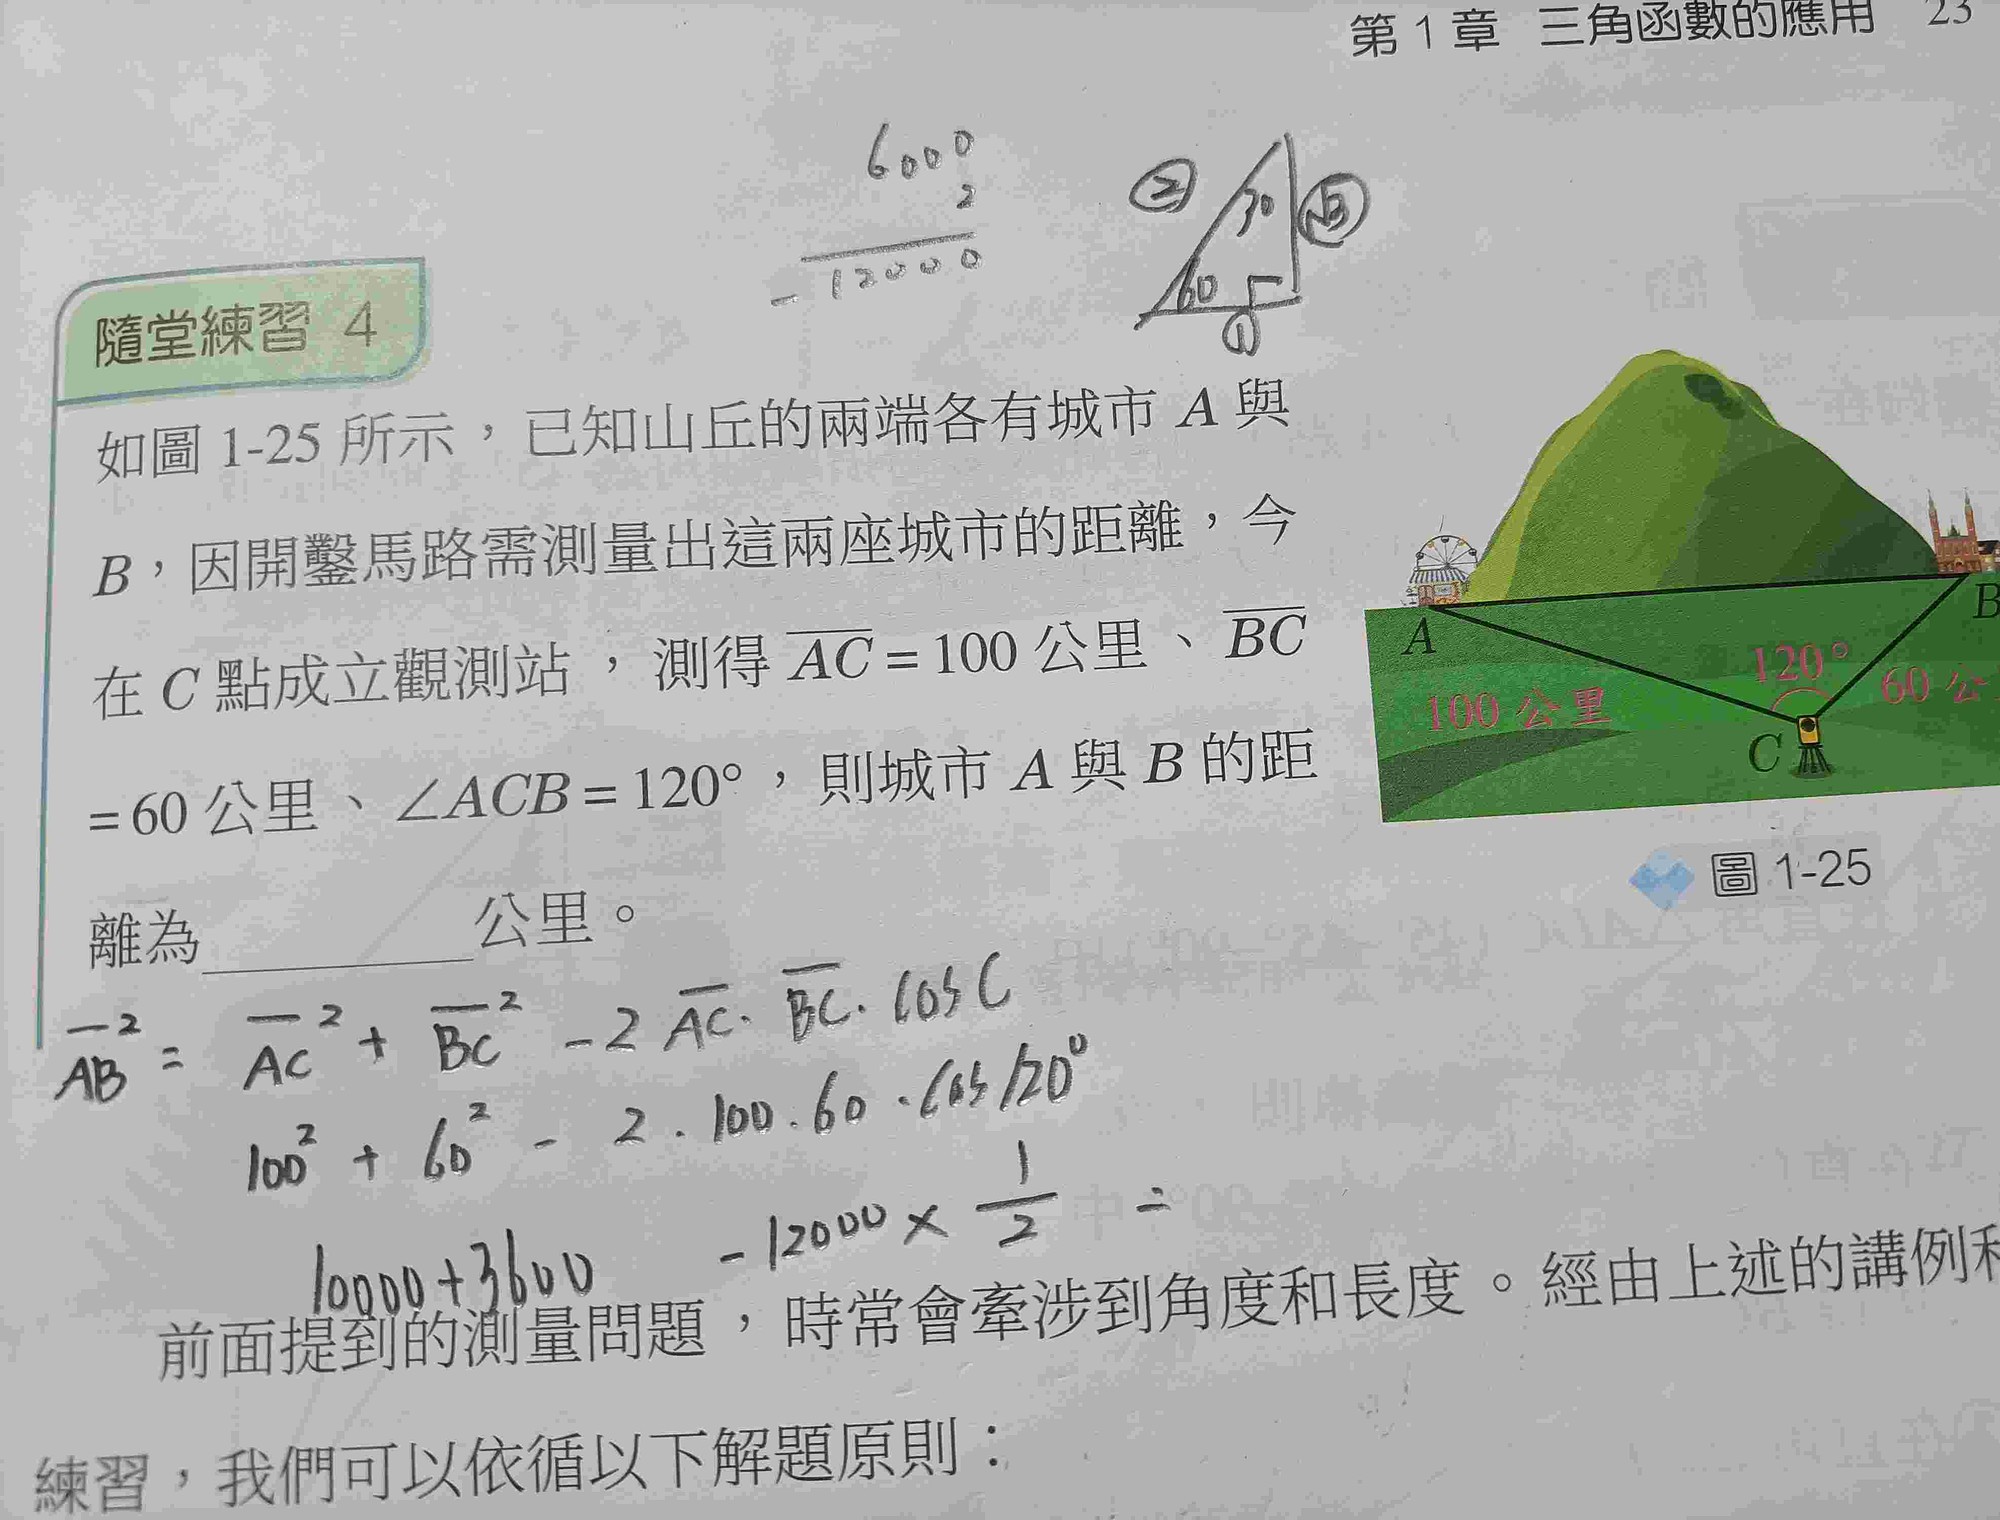 第 1 章 三角函數的應用 23
6000
2
- 12000
② 30 √3
60
①
隨堂練習 4
如圖 1-25 所示，已知山丘的兩端各有城市 A 與
B，因開鑿馬路需測量出這兩座城市的距離，今
在 C 點成立觀測站，測得 A̅C̅ = 100 公里、B̅C̅
= 60 公里、∠ACB = 120°，則城市 A 與 B 的距
離為________公里。
A
B
120°
100 公里
60 公
C
圖 1-25
A̅B̅² = A̅C̅² + B̅C̅² - 2 A̅C̅ · B̅C̅ · cos C
100² + 60² - 2 · 100 · 60 · cos 120°
10000 + 3600 - 12000 × 1/2 =
前面提到的測量問題，時常會牽涉到角度和長度。經由上述的講例和
練習，我們可以依循以下解題原則：